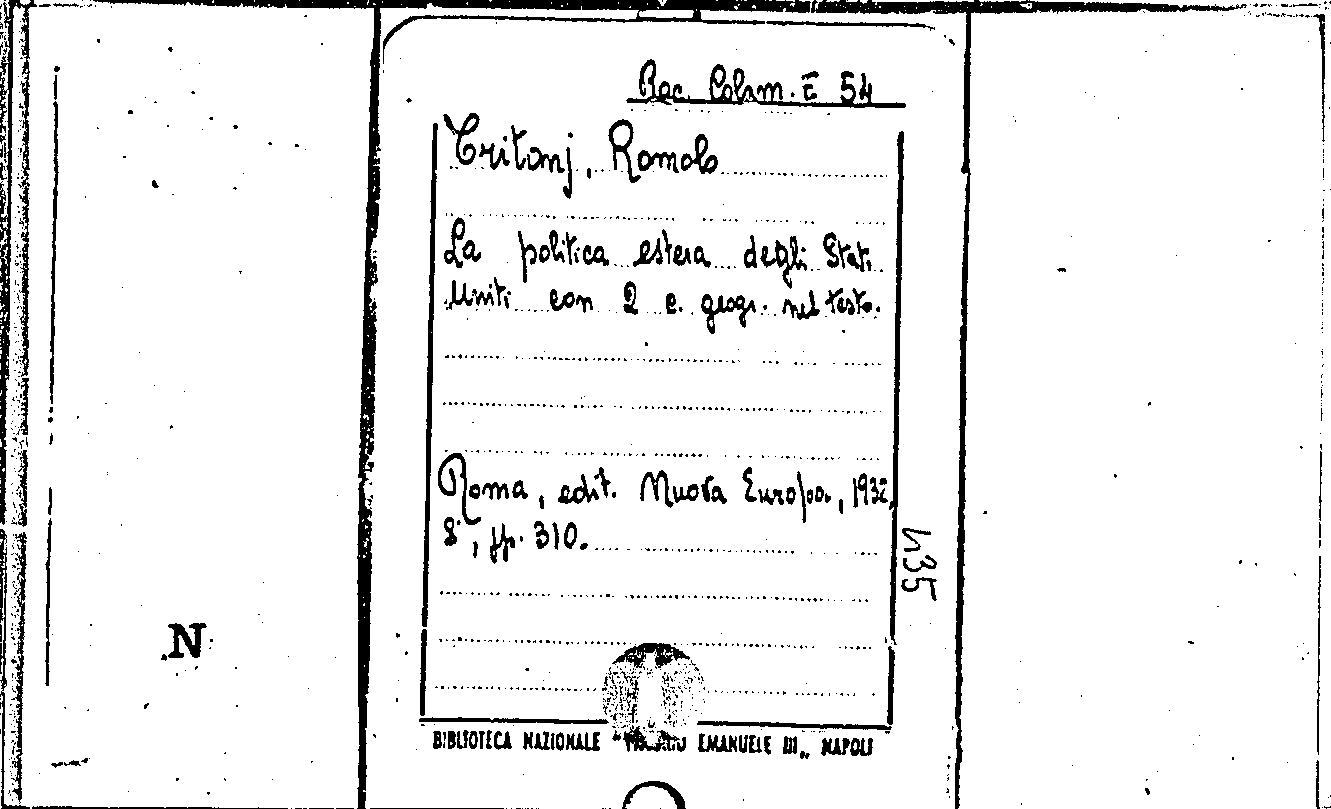 Rac. Colam. E 54
Tritonj, Romolo
La politica estera degli Stati
Uniti con 2 c. geogr. nel testo.
Roma, edit. Nuova Europa, 1932,
8°, pp. 310.
435
N
BIBLIOTECA NAZIONALE "VITTORIO EMANUELE III„ NAPOLI